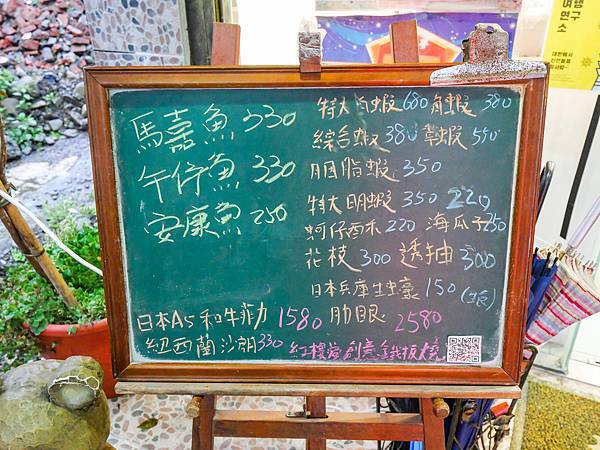 馬嘉魚 330
午仔魚 330
安康魚 250
特大角蝦 680 角蝦 380
綜合蝦 380 草蝦 550
胭脂蝦 350
特大明蝦 350 220
蚵仔酥 220 海瓜子 250
花枝 300 透抽 300
日本兵庫生蠔 150 (生食)
日本A5和牛菲力 1580 肋眼 2580
紐西蘭沙朗 330 紅樓房創意鐵板燒
여행
연구
소